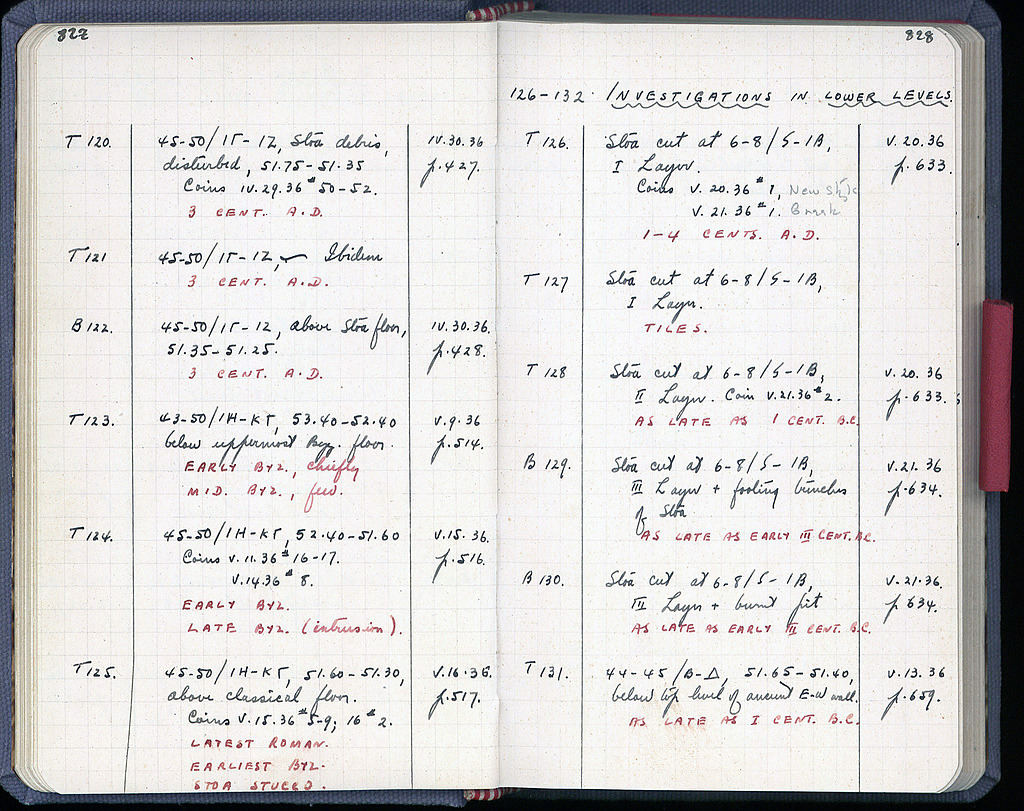 827
T 120. 45-50/1Γ-12, Stoa debris, IV.30.36
disturbed, 51.75-51.35 p.427.
Coins IV.29.36 # 50-52.
3 CENT. A.D.
T 121 45-50/1Γ-12, Ibidem
3 CENT. A.D.
B 122. 45-50/1Γ-12, above Stoa floor, IV.30.36.
51.35-51.25. p.428.
3 CENT. A.D.
T 123. 43-50/1H-KΓ, 53.40-52.40 V.9.36
below uppermost Byz. floor. p.514.
EARLY BYZ., chiefly
MID. BYZ., few.
T 124. 45-50/1H-KΓ, 52.40-51.60 V.15.36.
Coins V.11.36 # 16-17. p.516.
V.14.36 # 8.
EARLY BYZ.
LATE BYZ. (intrusion).
T 125. 45-50/1H-KΓ, 51.60-51.30, V.16.36.
above classical floor. p.517.
Coins V.15.36 # 5-9, 16 # 2.
LATEST ROMAN.
EARLIEST BYZ.
STOA STUCCO.
828
126-132 INVESTIGATIONS IN LOWER LEVELS.
T 126. Stoa cut at 6-8/5-1B, V.20.36
I Layer. p.633.
Coins V.20.36 # 1, New Style
V.21.36 # 1. Greek
1-4 CENTS. A.D.
T 127 Stoa cut at 6-8/5-1B,
I Layer.
TILES.
T 128 Stoa cut at 6-8/5-1B, V.20.36
II Layer. Coin V.21.36 # 2. p.633.
AS LATE AS 1 CENT. B.C.
B 129. Stoa cut at 6-8/5-1B, V.21.36
III Layer + footing trenches p.634.
of Stoa
AS LATE AS EARLY III CENT. B.C.
B 130. Stoa cut at 6-8/5-1B, V.21.36.
III Layer + burnt pit p 634.
AS LATE AS EARLY III CENT. B.C.
T 131. 44-45/B-Δ, 51.65-51.40, V.13.36
below top level of ancient E-W wall. p.659.
AS LATE AS I CENT. B.C.